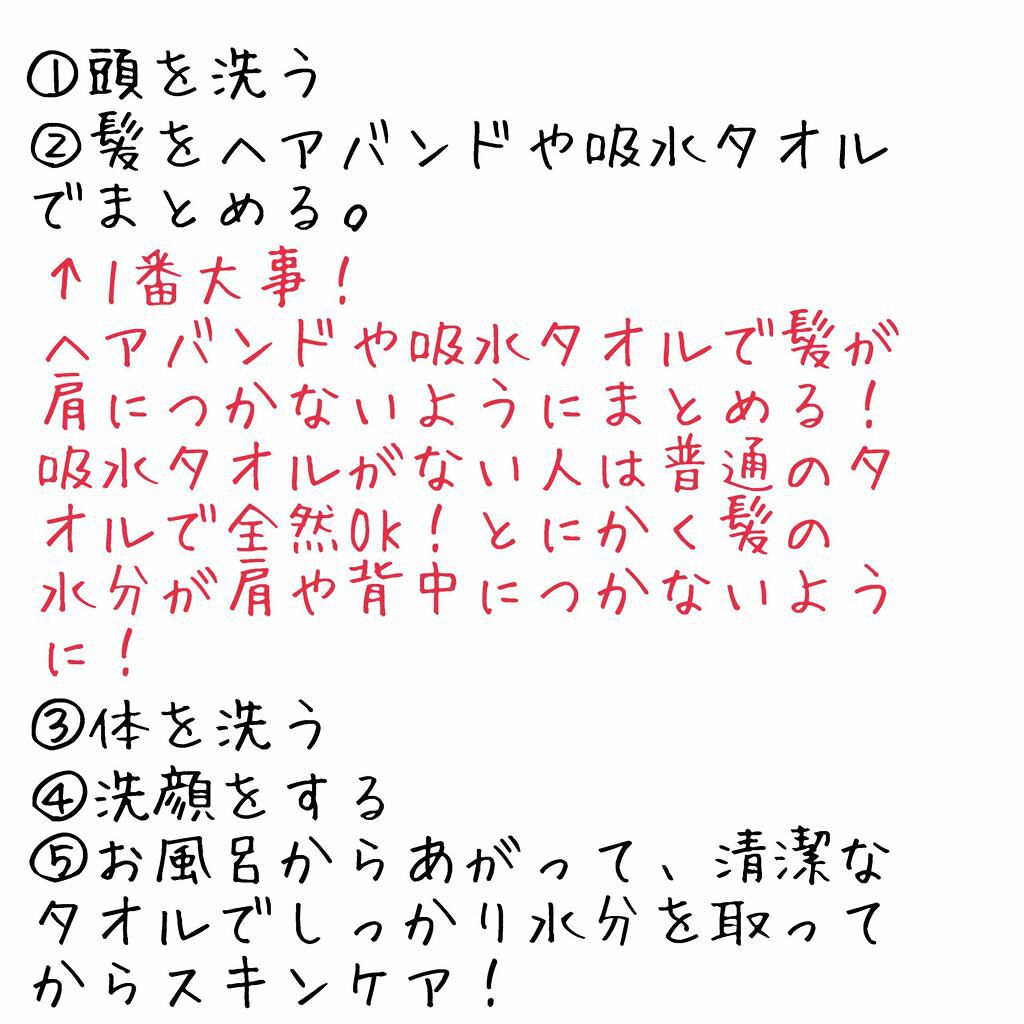 ①頭を洗う
②髪をヘアバンドや吸水タオル
でまとめる。
↑1番大事！
ヘアバンドや吸水タオルで髪が
肩につかないようにまとめる！
吸水タオルがない人は普通のタ
オルで全然Ok！とにかく髪の
水分が肩や背中につかないよう
に！
③体を洗う
④洗顔をする
⑤お風呂からあがって、清潔な
タオルでしっかり水分を取って
からスキンケア！